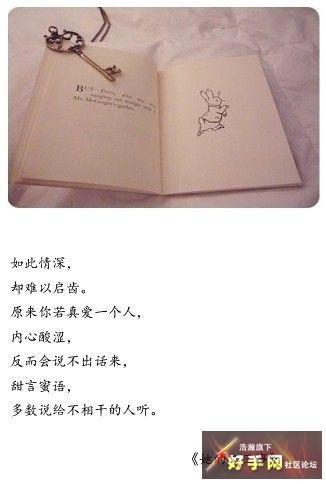 BUT Peter, who was very
naughty, ran straight away to
Mr. McGregor's garden,
如此情深，
却难以启齿。
原来你若真爱一个人，
内心酸涩，
反而会说不出话来，
甜言蜜语，
多数说给不相干的人听。
《她
浩瀚旗下
好手网 社区论坛